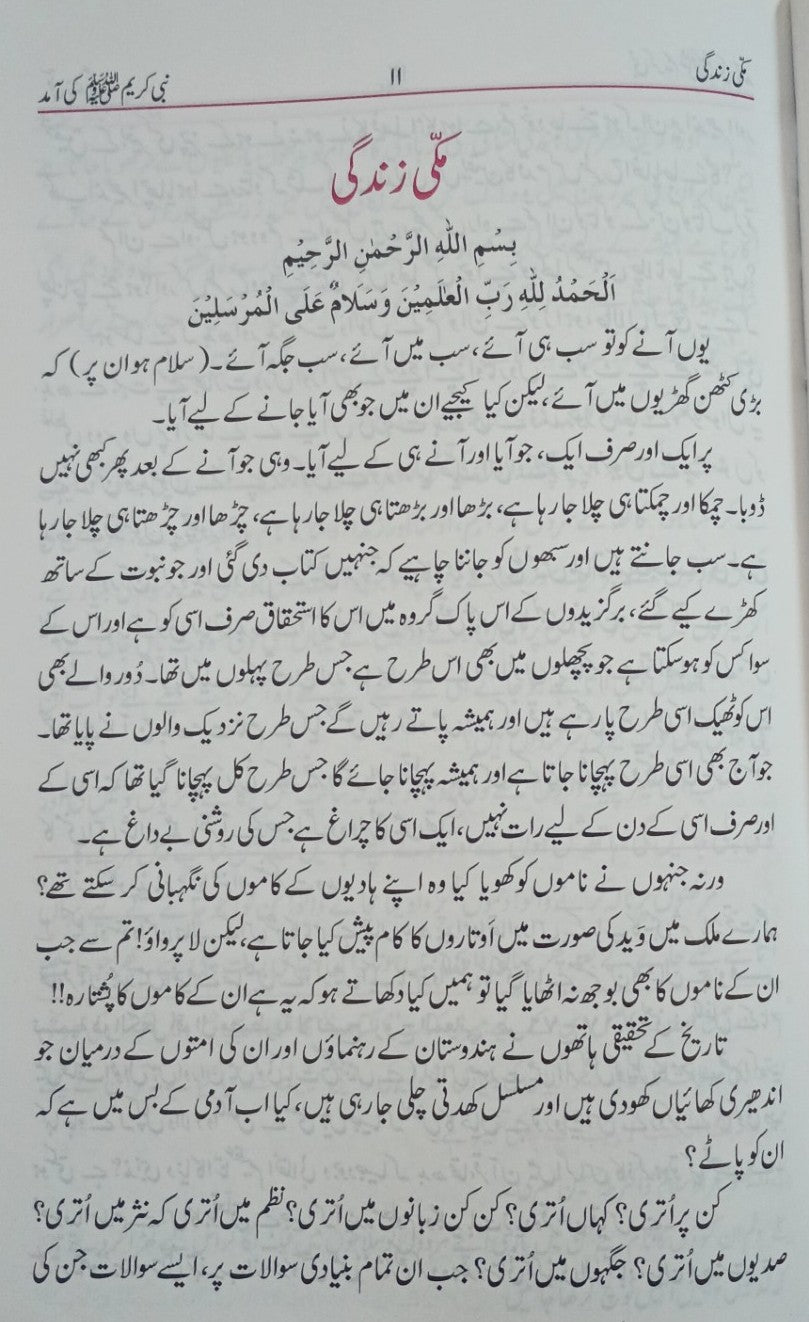 مکّی زندگی ۱۱ نبی کریم ﷺ کی آمد
مکّی زندگی
بِسْمِ اللهِ الرَّحْمٰنِ الرَّحِيْمِ
اَلْحَمْدُ لِلّٰهِ رَبِّ الْعٰلَمِيْنَ وَسَلَامٌ عَلَى الْمُرْسَلِيْنَ
یوں آنے کو تو سب ہی آئے، سب میں آئے، سب جگہ آئے۔ (سلام ہو ان پر) کہ
بڑی کٹھن گھڑیوں میں آئے، لیکن کیا کیجیے ان میں جو بھی آیا جانے کے لیے آیا۔
پر ایک اور صرف ایک، جو آیا اور آنے ہی کے لیے آیا۔ وہی جو آنے کے بعد پھر کبھی نہیں
ڈوبا۔ چمکا اور چمکتا ہی چلا جا رہا ہے، بڑھا اور بڑھتا ہی چلا جا رہا ہے، چڑھا اور چڑھتا ہی چلا جا رہا
ہے۔ سب جانتے ہیں اور سبھوں کو جاننا چاہیے کہ جنہیں کتاب دی گئی اور جو نبوت کے ساتھ
کھڑے کیے گئے، برگزیدوں کے اس پاک گروہ میں اس کا استحقاق صرف اسی کو ہے اور اس کے
سوا کس کو ہو سکتا ہے جو پچھلوں میں بھی اس طرح ہے جس طرح پہلوں میں تھا۔ دُور والے بھی
اس کو ٹھیک اسی طرح پا رہے ہیں اور ہمیشہ پاتے رہیں گے جس طرح نزدیک والوں نے پایا تھا۔
جو آج بھی اسی طرح پہچانا جاتا ہے اور ہمیشہ پہچانا جائے گا جس طرح کل پہچانا گیا تھا کہ اسی کے
اور صرف اسی کے دن کے لیے رات نہیں، ایک اسی کا چراغ ہے جس کی روشنی بے داغ ہے۔
ورنہ جنہوں نے ناموں کو کھویا کیا وہ اپنے ہادیوں کے کاموں کی نگہبانی کر سکتے تھے؟
ہمارے ملک میں وَید کی صورت میں اَوتاروں کا کام پیش کیا جاتا ہے، لیکن لا پرواؤ! تم سے جب
ان کے ناموں کا بھی بوجھ نہ اٹھایا گیا تو ہمیں کیا دکھاتے ہو کہ یہ ہے ان کے کاموں کا پُشتارہ!!
تاریخ کے تحقیقی ہاتھوں نے ہندوستان کے رہنماؤں اور ان کی امتوں کے درمیان جو
اندھیری کھائیاں کھودی ہیں اور مسلسل کھدتی چلی جا رہی ہیں، کیا اب آدمی کے بس میں ہے کہ
ان کو پاٹے؟
کن پر اُتری؟ کہاں اُتری؟ کن کن زبانوں میں اُتری؟ نظم میں اُتری کہ نثر میں اُتری؟
صدیوں میں اُتری؟ جگہوں میں اُتری؟ جب ان تمام بنیادی سوالات پر، ایسے سوالات جن کی